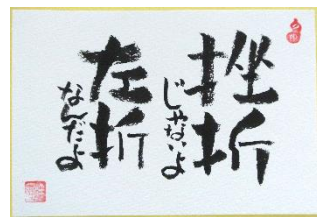 挫折
じゃないよ
左折
なんだよ